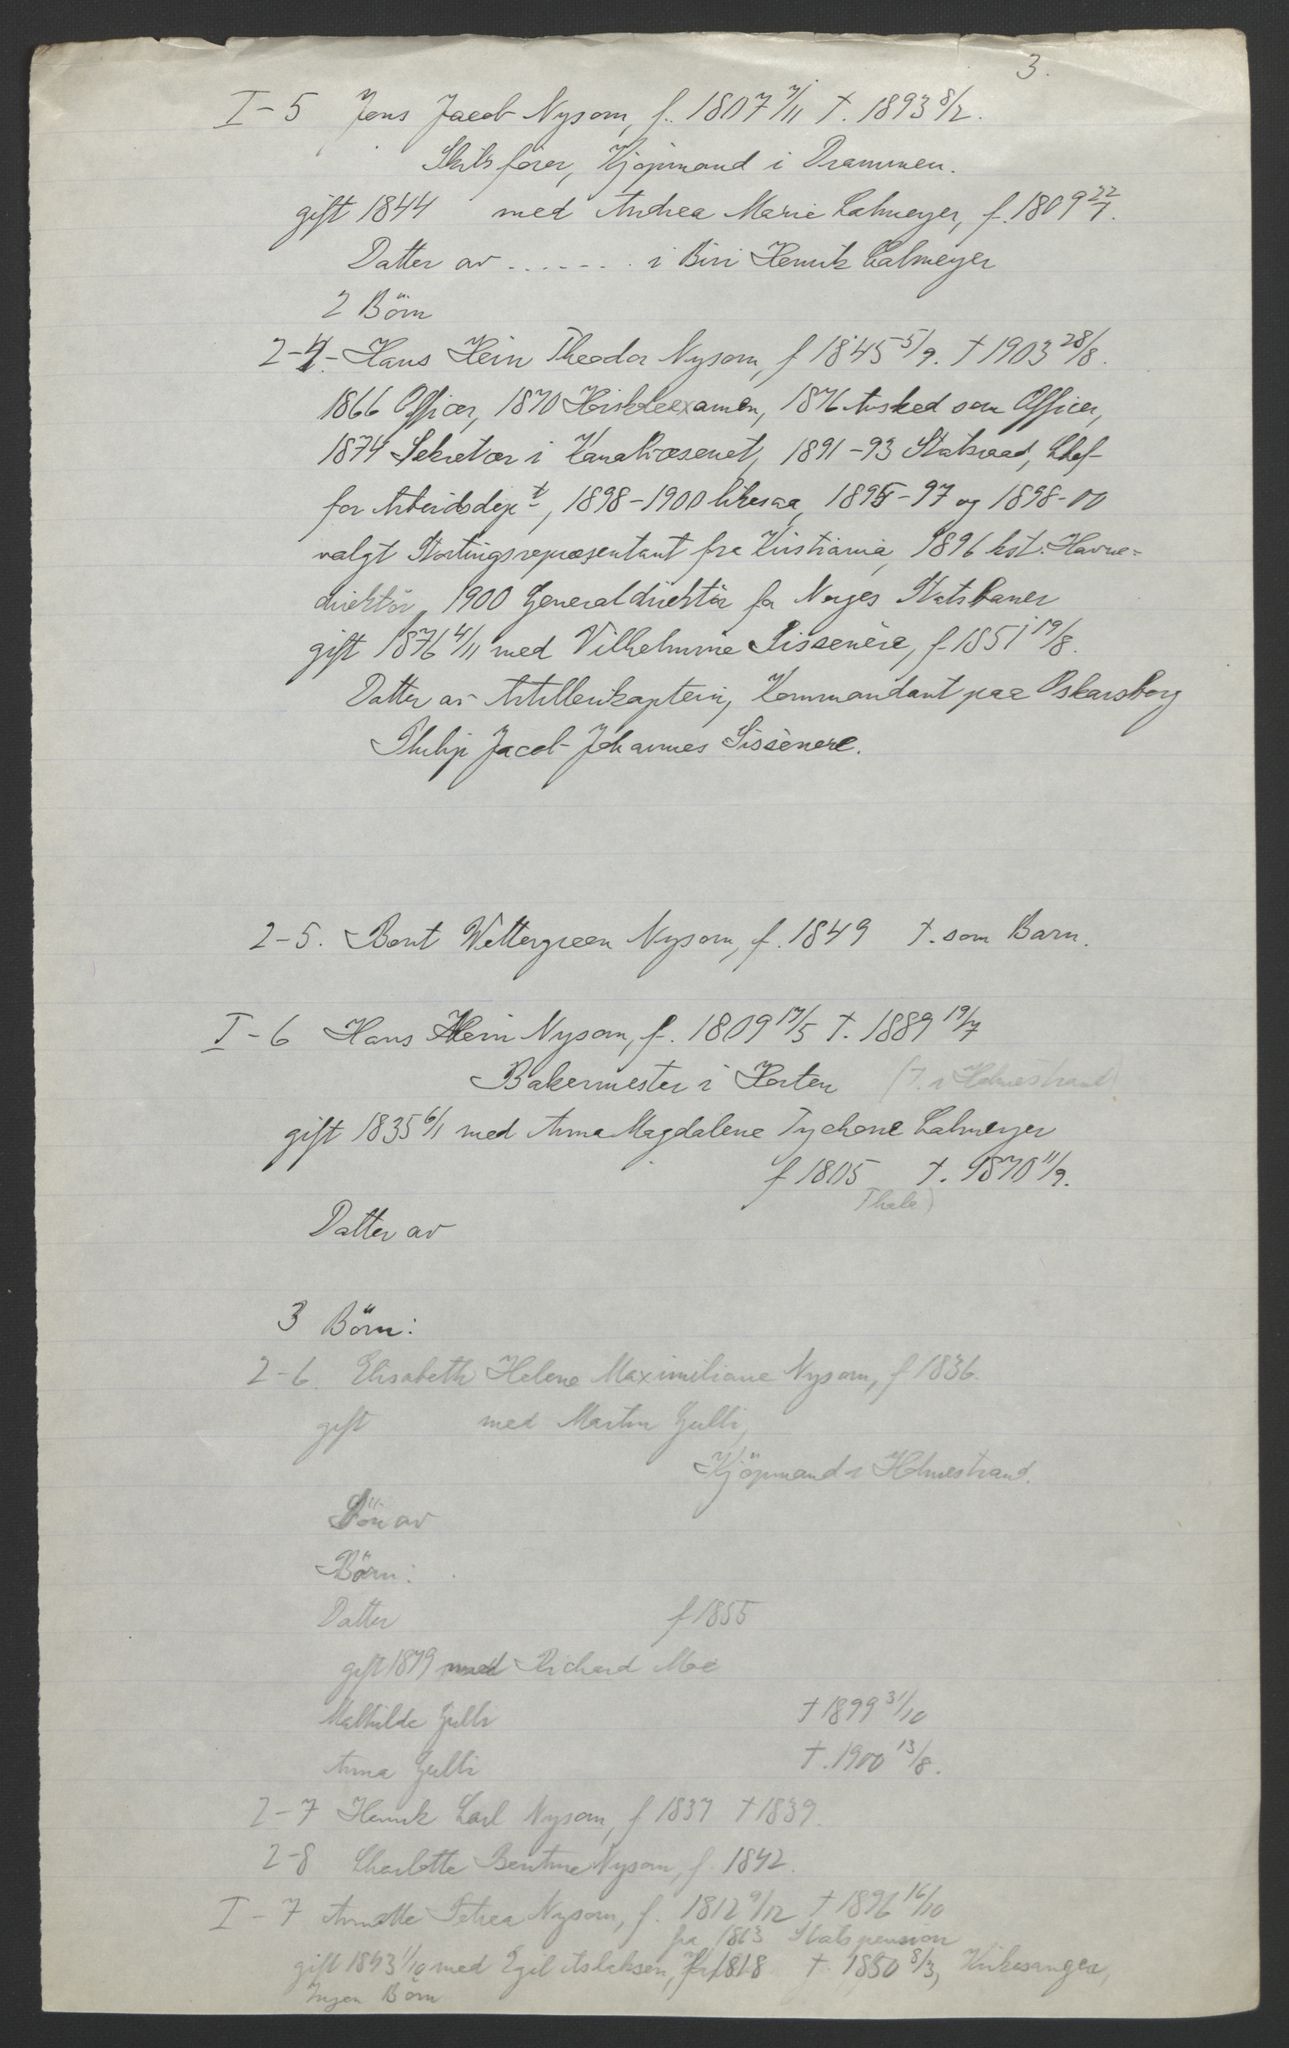 3.
I-5 Jens Jacob Nysom, f. 1807 7/11 †. 1893 8/2.
Skibsfører, Kjøpmand i Drammen.
gift 1844 med Andrea Marie Calmeyer, f. 1809 22/7.
Datter av ....... i Biri Henrik Calmeyer
2 Börn
2-4. Hans Hein Theodor Nysom, f 1845 5/9. † 1903 28/8.
1866 Officer, 1870 Høiskoleexamen, 1876 Avsked som Officer,
1874 Sekretær i Kanalvæsenet, 1891-93 Statsraad, Chef
for Arbeidsdept, 1898-1900 likesaa, 1895-97 og 1898-00
valgt Stortingsrepræsentant fra Kristiania, 1896 kst. Havne-
direktör, 1900 Generaldirektör for Norges Statsbaner
gift 1876 4/11 med Vilhelmine Sissenère, f. 1851 19/8.
Datter av Artillerikaptein, Kommandant paa Oskarsborg
Philip Jacob Johannes Sissènere.
2-5. Bent Wettergreen Nysom, f. 1849 †. som Barn.
I-6 Hans Hein Nysom, f. 1809 17/5 †. 1889 19/7
Bakermester i Horten (7. i Holmestrand)
gift 1835 6/1 med Anna Magdalene Tychone Calmeyer
f 1805 †. 1870 11/9.
Thale)
Datter av
3 Börn:
2-6. Elisabeth Helene Maximiliane Nysom, f 1836.
gift med Martin Gulli,
Kjöpmand i Holmestrand.
Sön av
Börn:
Datter f 1855
gift 1879 med Richard Moe
Mathilde Gulli † 1899 31/10
Anna Gulli †. 1900 13/8.
2-7 Henrik Carl Nysom, f 1837 † 1839.
2-8 Charlotte Bentine Nysom, f. 1842.
I-7 Annette Petrea Nysom, f. 1812 9/12 † 1896 16/10
fra 1863 Statspension
gift 1843 1/10 med Egil Aslaksen, f. 1818 †. 1850 8/3, Kirkesanger,
Ingen Börn